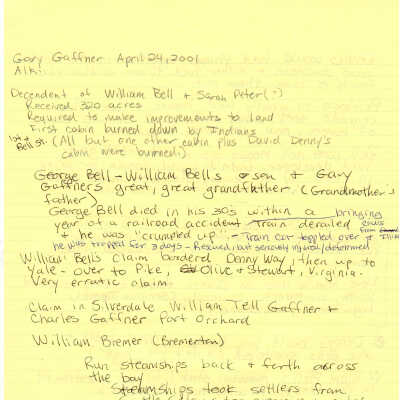 Gary Gaffner April 24, 2001
Alki
Decendent of William Bell + Sarah Peter(?)
Received 320 acres
Required to make improvements to land
First cabin burned down by Indians
1st + Bell St. (All but one other cabin plus David Denny's
cabin were burned.)
George Bell - William Bell's son + Gary
Gaffners great, great grandfather. (Grandmother's
father)
George Bell died in his 30's within a bringing
year of a railroad accident Train derailed cows
+ he was "crumpled up". - Train car toppled over from
he was trapped for 3 days - Rescued, but seriously injured/
William Bell's claim bordered Denny Way, then up to
Yale - over to Pike, Olive + Stewart, Virginia.
Very erratic claim.
Claim in Silverdale William Tell Gaffner +
Charles Gaffner Port Orchard
William Bremer (Bremerton)
Run steamships back + forth across
the bay
Steamships took settlers from